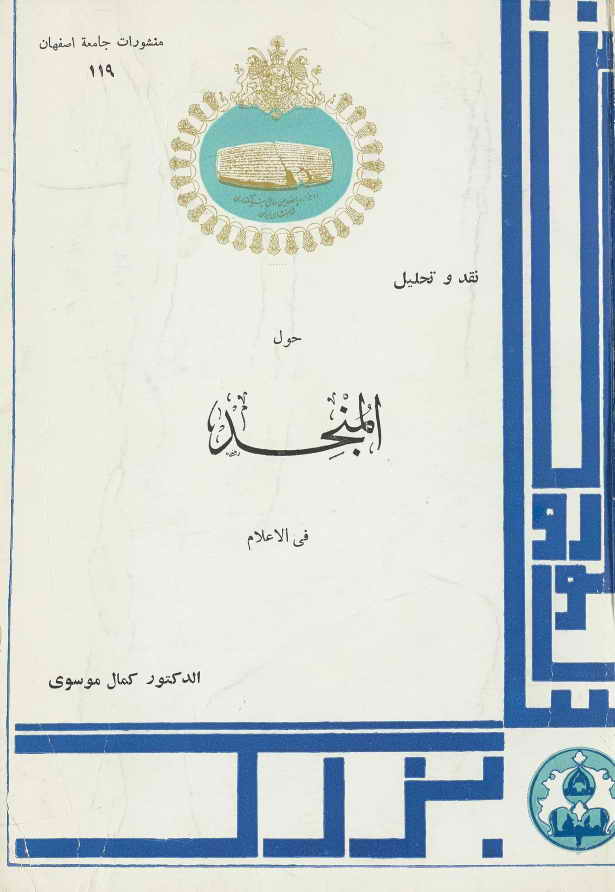 منشورات جامعة اصفهان
١١٩
نقد و تحليل
حول
المُنْجِد
فى الاعلام
الدكتور كمال موسوى
بزرگ